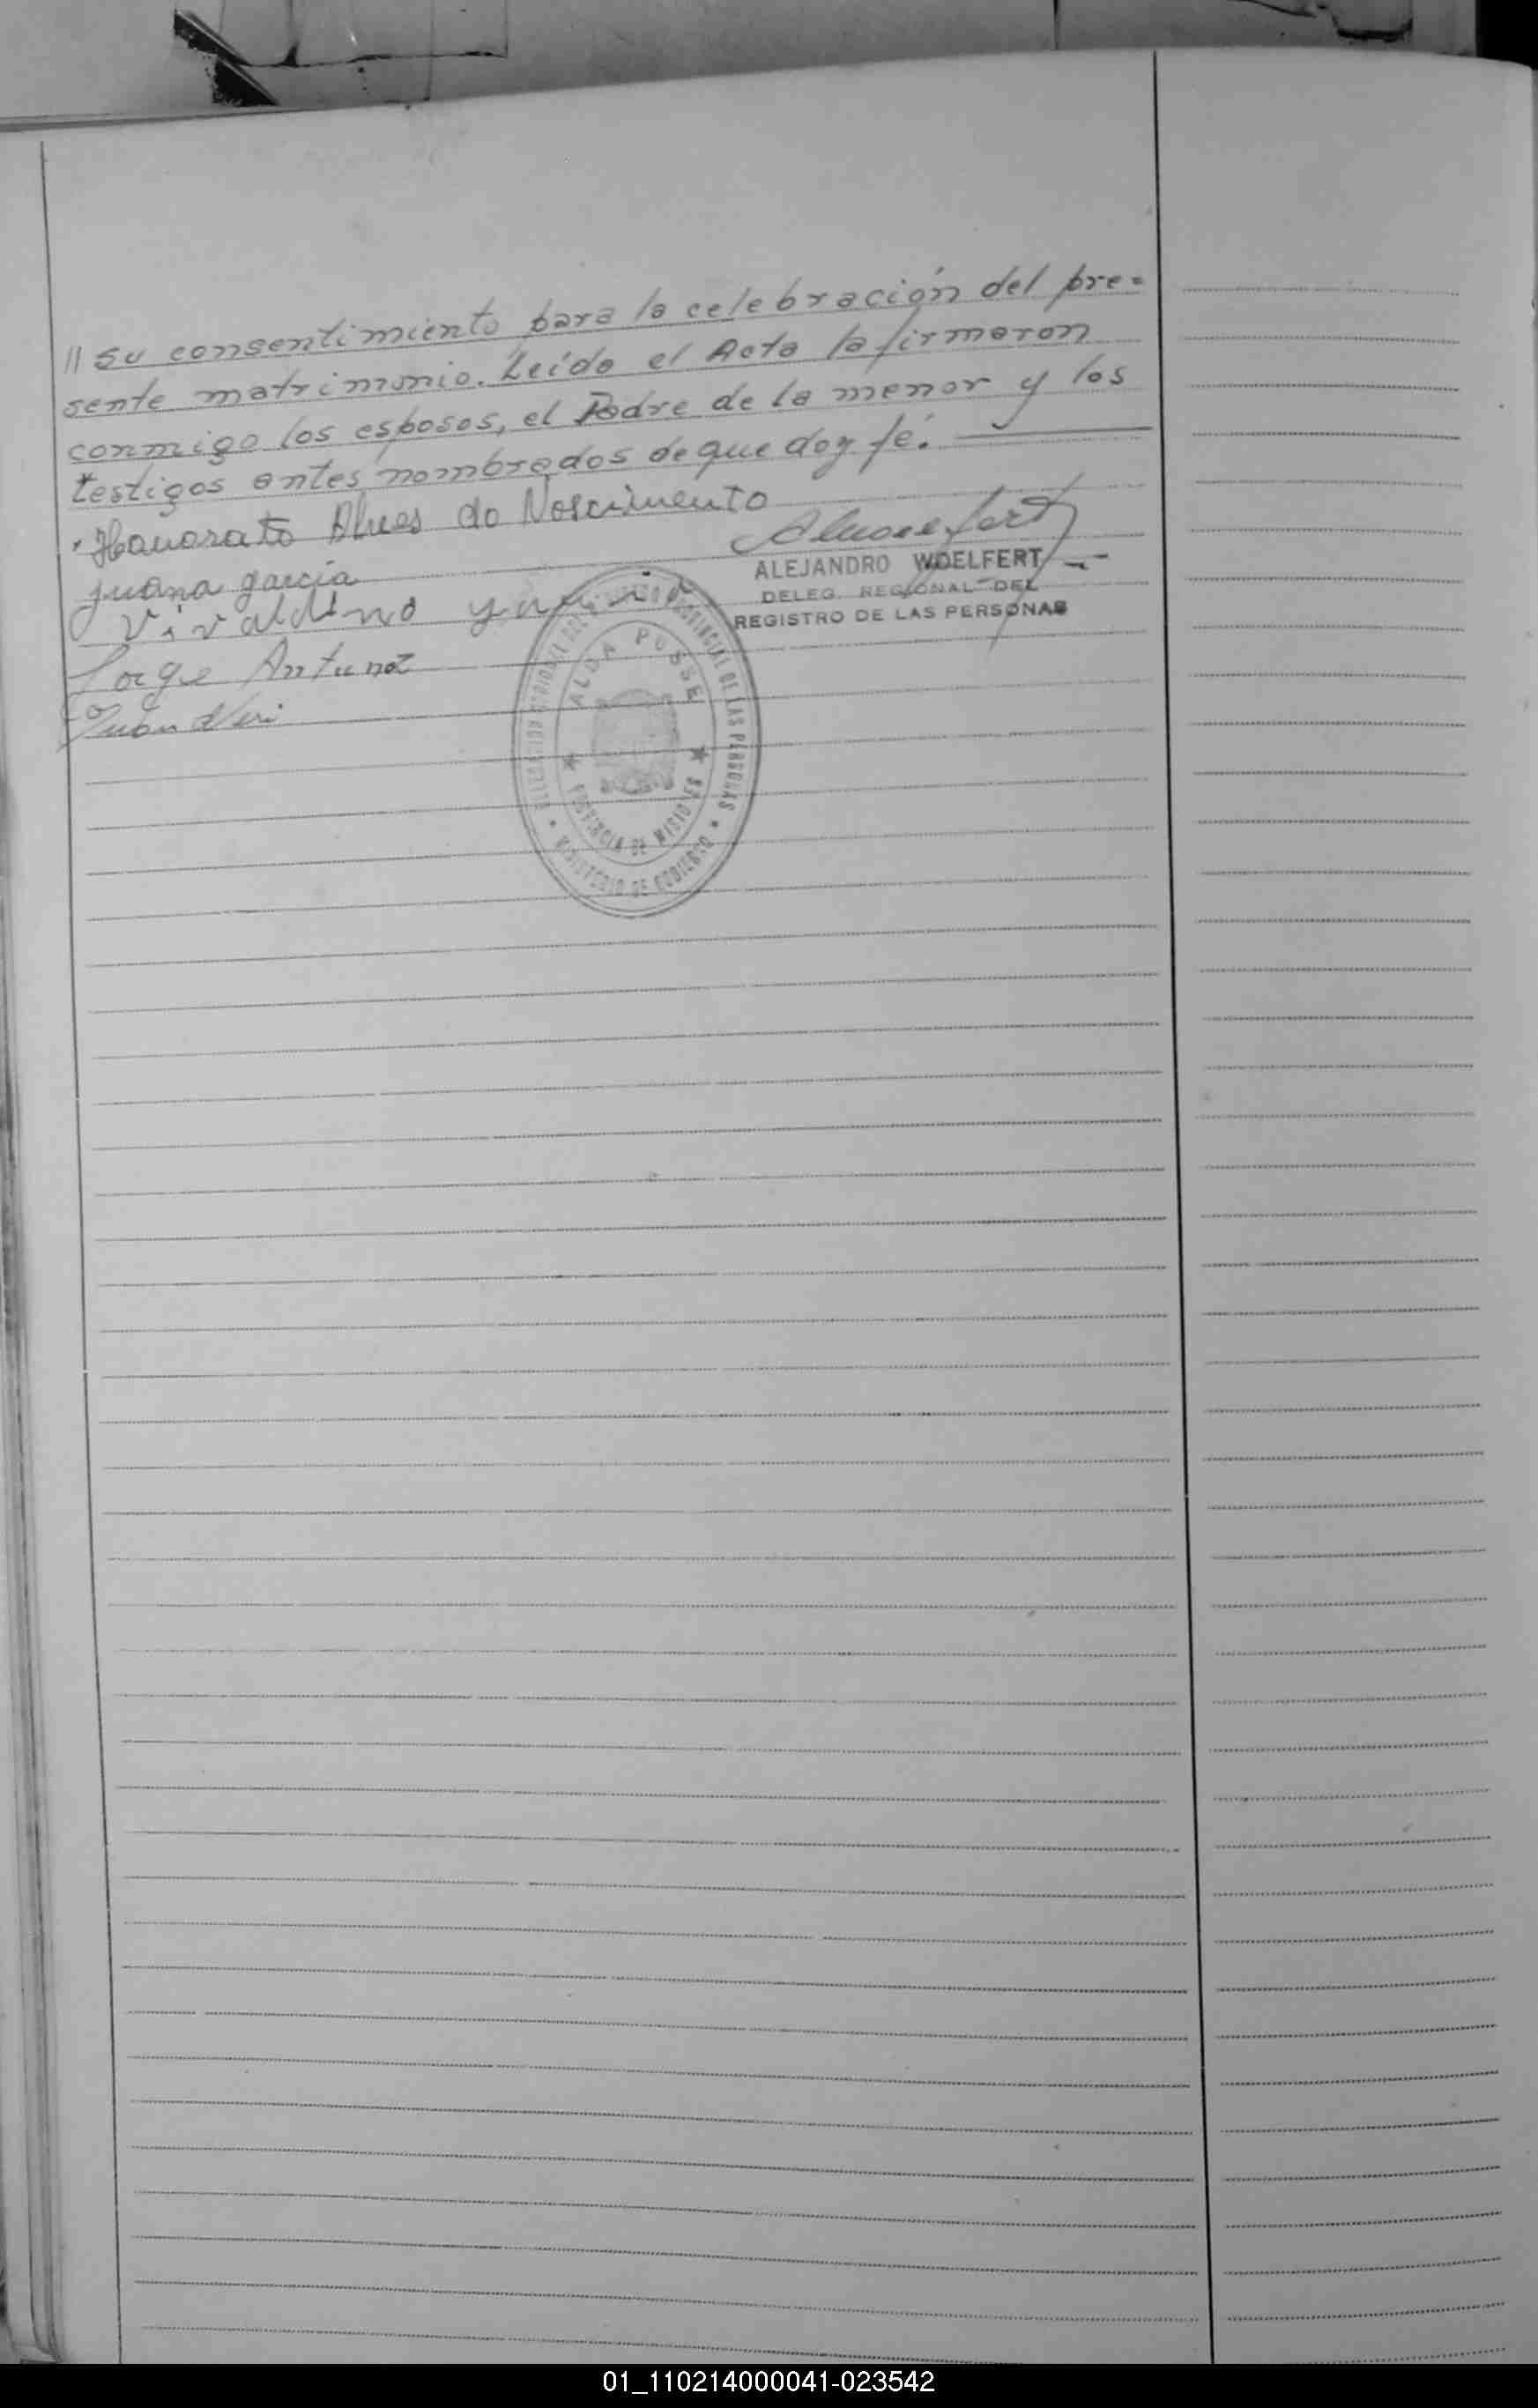 // su consentimiento para la celebración del pre=
sente matrimonio. Leída el Acta la firmaron
conmigo los esposos, el Padre de la menor y los
testigos antes nombrados de que doy fé.
Hanorato Alves do Nascimento
juana garcia
ALEJANDRO WOELFERT
DELEG. REGIONAL DEL
REGISTRO DE LAS PERSONAS
Vivaldino
Jorge Antunez
Juan Neri
PROVINCIAL DE LAS PERSONAS
ALBA POSSE
PROVINCIA DE MISIONES
MINISTERIO DE GOBIERNO
01_110214000041-023542